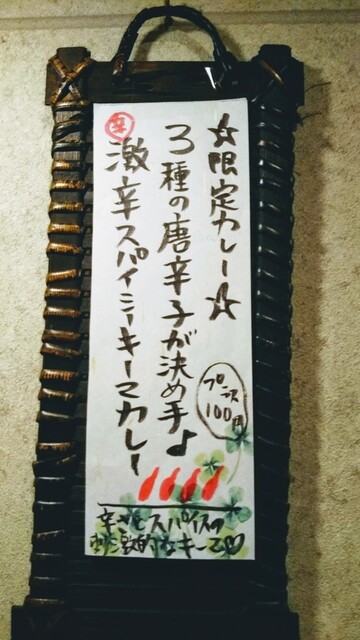 ☆限定カレー☆
プラス
100円
3種の唐辛子が決め手♪
辛
激辛スパイシーキーマカレー
辛さとスパイスの
刺激的なキーマ♡